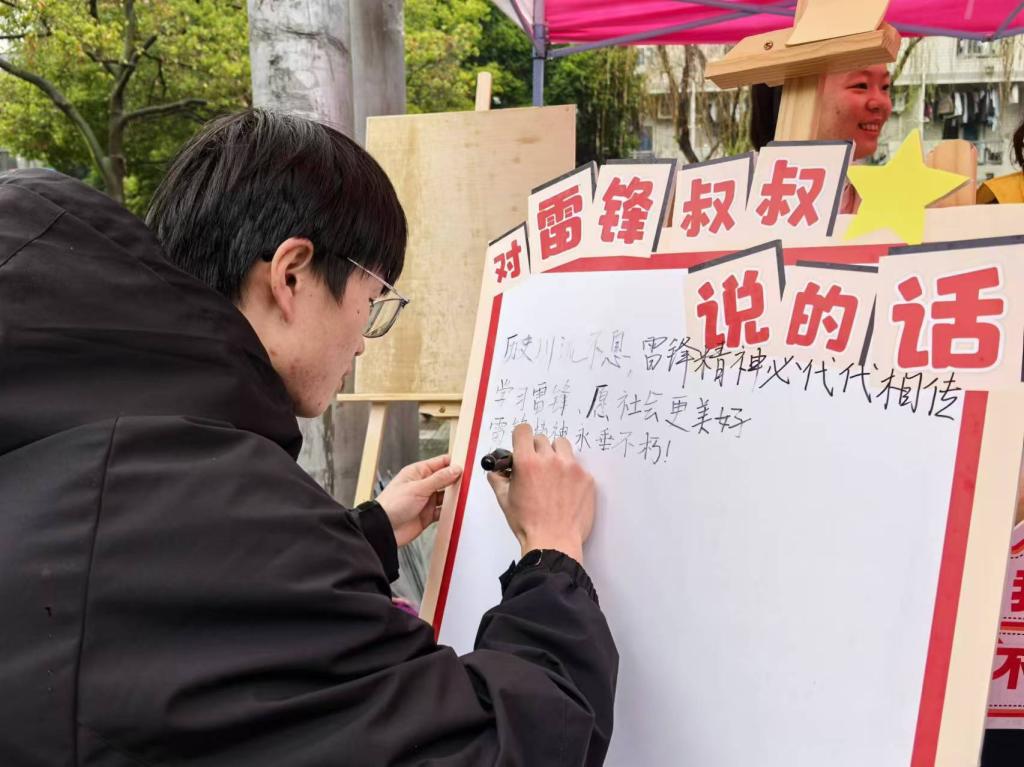 对雷锋叔叔
说的话
历史川流不息,雷锋精神必代代相传
学习雷锋,愿社会更美好
雷锋精神永垂不朽!